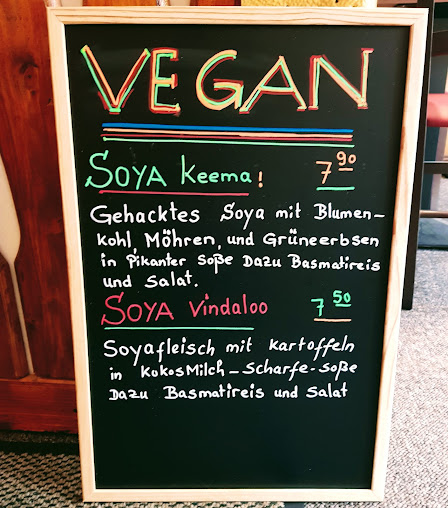 VEGAN
SOYA Keema! 7 90
Gehacktes Soya mit Blumen-
kohl, Möhren, und Grüneerbsen
in Pikanter Soße Dazu Basmatireis
und Salat.
SOYA Vindaloo 7 50
Soyafleisch mit Kartoffeln
in KokosMilch-Scharfe-Soße
Dazu Basmatireis und Salat